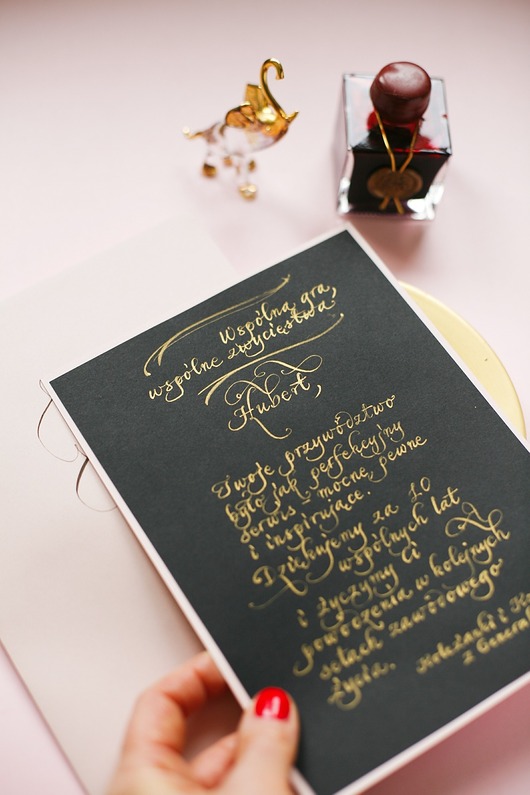 Wspólna gra,
wspólne zwycięstwa
Hubert,
Twoje przywództwo
było jak perfekcyjny
serwis - mocne, pewne
i inspirujące.
Dziękujemy za 10
wspólnych lat
i życzymy Ci
powodzenia w kolejnych
setach zawodowego
życia.
Koleżanki i Ko
z General